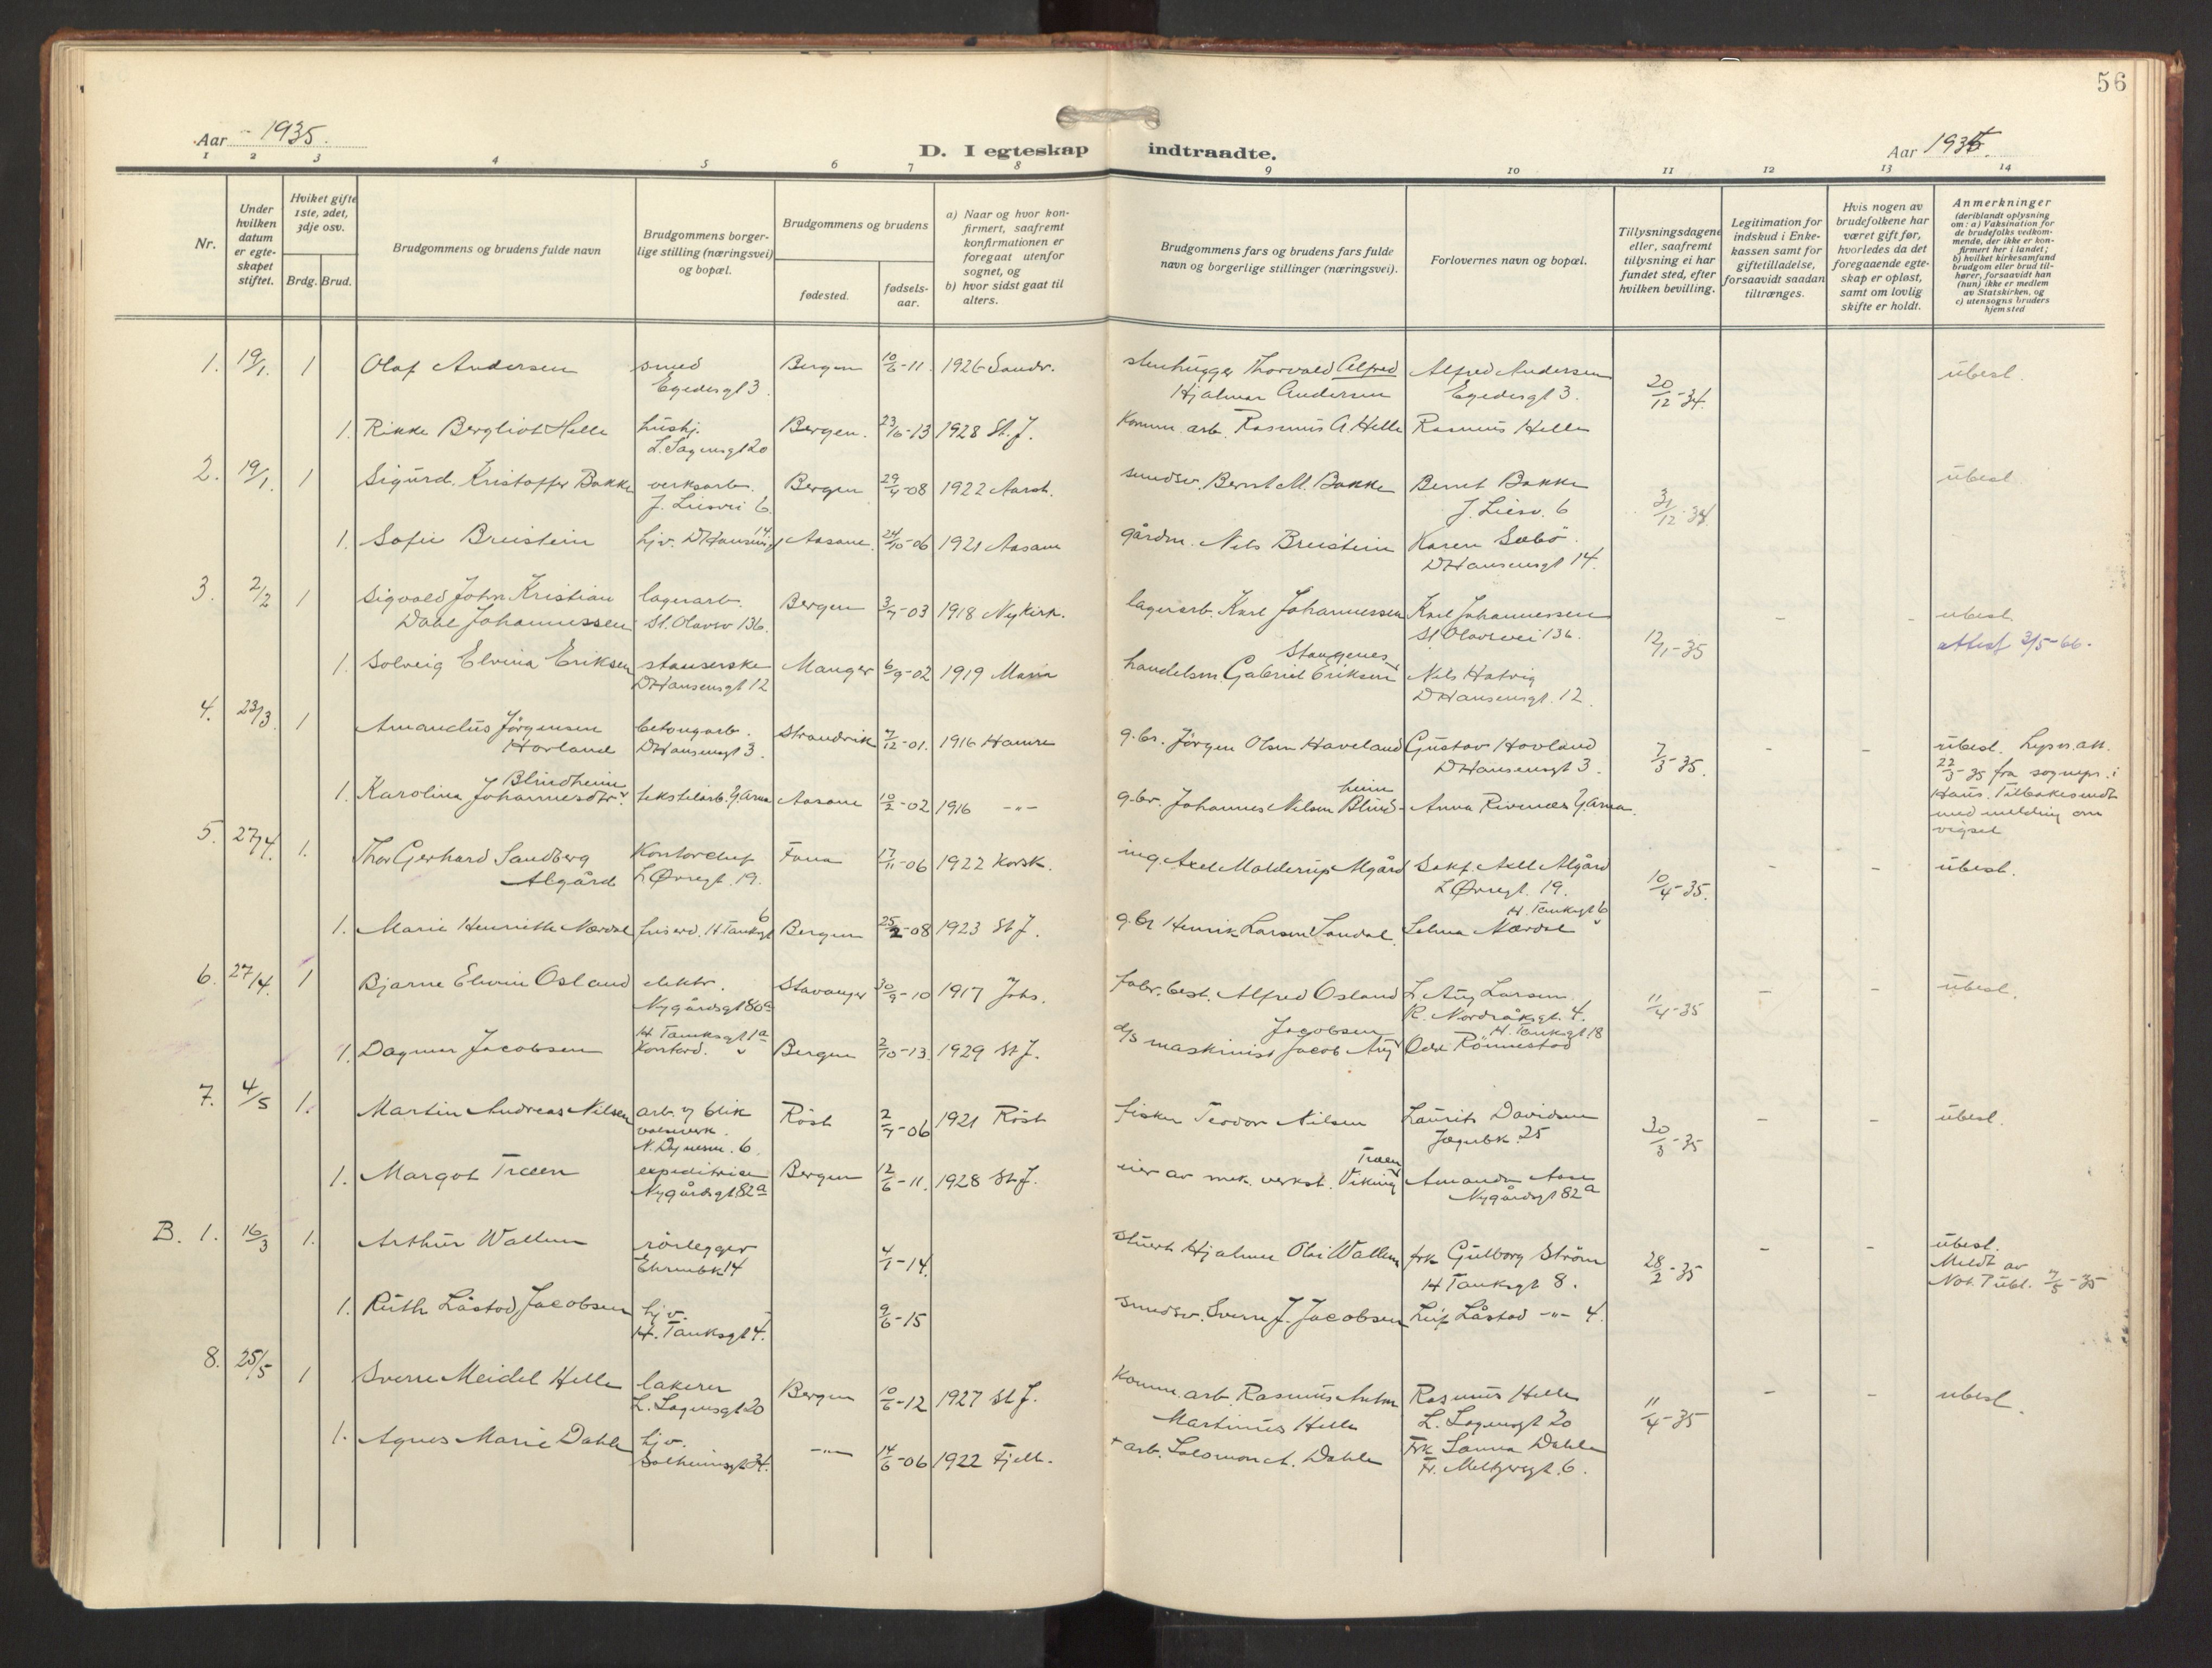 56
Aar 1935.
D. I egteskap indtraadte.
Aar 1935.
1 2 3 4 5 6 7 8 9 10 11 12 13 14
Nr.
Under hvilken datum er egteskapet stiftet.
Hviket gifte 1ste, 2det, 3dje osv.
Brdg. Brud.
Brudgommens og brudens fulde navn
Brudgommens borgerlige stilling (næringsvei) og bopæl.
Brudgommens og brudens
fødested.
fødselsaar.
a) Naar og hvor konfirmert, saafremt konfirmationen er foregaat utenfor sognet, og
b) hvor sidst gaat til alters.
Brudgommens fars og brudens fars fulde navn og borgerlige stillinger (næringsvei).
Forlovernes navn og bopæl.
Tillysningsdagene eller, saafremt tillysning ei har fundet sted, efter hvilken bevilling.
Legitimation for indskud i Enkekassen samt for giftetilladelse, forsaavidt saadan tiltrænges.
Hvis nogen av brudefolkene har været gift før, hvorledes da det foregaaende egteskap er opløst, samt om lovlig skifte er holdt.
Anmerkninger
(deriblandt oplysning om: a) Vaksination for de brudefolks vedkommende, der ikke er konfirmert her i landet; b) hvilket kirkesamfund brudgom eller brud tilhører, forsaavidt han (hun) ikke er medlem av Statskirken, og c) utensogns bruders hjemsted
1. 19/1. 1 Olaf Andersen smed Bergen 10/6-11. 1926 Sandv. stenhugger Thorvald Alfred Alfred Andersen 20/12-34. ubesl.
Egedesgt 3. Hjalmar Andersen Egedesgt 3.
1. Rikke Bergliot Helle hushj. Bergen. 23/6-13 1928 St. J. Komm. arb. Rasmus A. Helle Rasmus Helle
L. Sagensgt 20
2. 19/1. 1 Sigurd Kristoffer Bakke verksarb. Bergen 29/4-08 1922 Aarst. smedsv. Bernt M. Bakke Bernt Bakke 31/12-34 ubesl
J. Liesvei 6. J. Liesv. 6
1. Sofie Breistein hjv. D Hansensgt 14. Aasane. 24/10-06 1921 Aasane gårdm. Nils Breistein Karen Sæbö.
D Hansensgt 14.
3. 2/2 1 Sigvald John Kristian lagerarb. Bergen 3/7-03 1918 Nykirk. lagerarb. Karl Johannessen Karl Johannessen 12/1-35 - - ubesl.
Dahl Johannessen St. Olavsv 136. St Olavsvei 136. attest 3/5-66.
1. Solveig Elvina Eriksen stanserske Manger 6/9-02 1919 Maria handelsm. Gabriel Eriksen Stangenes Nils Hatvig
D Hansensgt 12 D Hansensgt. 12.
4. 23/3 1 Amandus Jörgensen betongarb. Strandvik 7/12-01. 1916 Hamre g.br. Jörgen Olsen Haveland Gustav Hovland 7/3-35. - - ubesl. Lysn. att.
Hovland D Hansensgt 3. D Hansensgt 3. 22/3-35 fra sognepr. i
1. Karolina Johannesdtr. Blindheim tekstilarb. Y. Arna Aasane 10/2-02 1916 -"- g.br. Johannes Nilsen Blindheim Anna Rivenes Y. Arna. Haus. Tilbakesendt
med melding om
vigsel
5. 27/4. 1. Thor Gerhard Sandberg Kontorchef Fana 17/11-06 1922 Korsk. ing. Axel Molderup Algård Axel Algård 10/4-35. - - ubesl.
Algård L Øvregt. 19. L Øvregt. 19.
1. Marie Henriette Nærdal friserd. H. Tanksgt 6 Bergen 25/2-08 1923 St J. g.br Henrik Larsen Selma Nærdal H. Tanksgt 6
6. 27/4. 1 Bjarne Elvin Osland elektr. Stavanger 30/9-10 1917 Johs. fabr. best. Alfred Osland L. Aug Larsen 11/4-35 - - ubesl.
Nygårdsgt 80a R. Nordråksgt. 4.
1. Dagmar Jacobsen Kontord. H Tanksgt 1a Bergen 2/10-13. 1929 St J. d/s maskinist Jacob Aug Jacobsen Odd Rönnestad H. Tanksgt 18
7. 4/5 1. Martin Andreas Nilsen arb. v blik Röst 2/7-06 1921 Röst fisker Teodor Nilsen Laurits Davidsen 30/3-35 - - ubesl.
valseverk. 25
1. Margot Træen expeditrise Bergen 12/6-11. 1928 St J. eier av mek. verkst. Viking Træen Amanda Aase
Nygårdsgt 82a Nygårdsgt 82a
B. 1. 16/3 1. Arthur Wallem rörlegger 4/1-14. stuert Hjalmar Wallem frk Gulborg Ström 28/2-35 - - ubesl.
14 H Tanksgt 8. Meldt av
1. Ruth Låstad Jacobsen hjv. 9/6-15 smedsv. Sverre J. Jacobsen Leif Låstad -"- 4. Not. Publ. 7/5-35
H. Tanksgt 4.
8. 25/5 1 Sverre Meidel Helle lakerer Bergen 10/6-12 1927 St J. Komm. arb. Rasmus Rasmus Helle 11/4-35 - - ubesl.
L. Sagensgt 20 Martinus Helle L. Sagensgt 20
1. Agnes Marie Dahle hjv. -"- 14/6-06 1922 Fjell. + arb. Salomon A. Dahle Frk Sanna Dahle
Solheimsgt 34. Fr. Meltzersgt. 6.